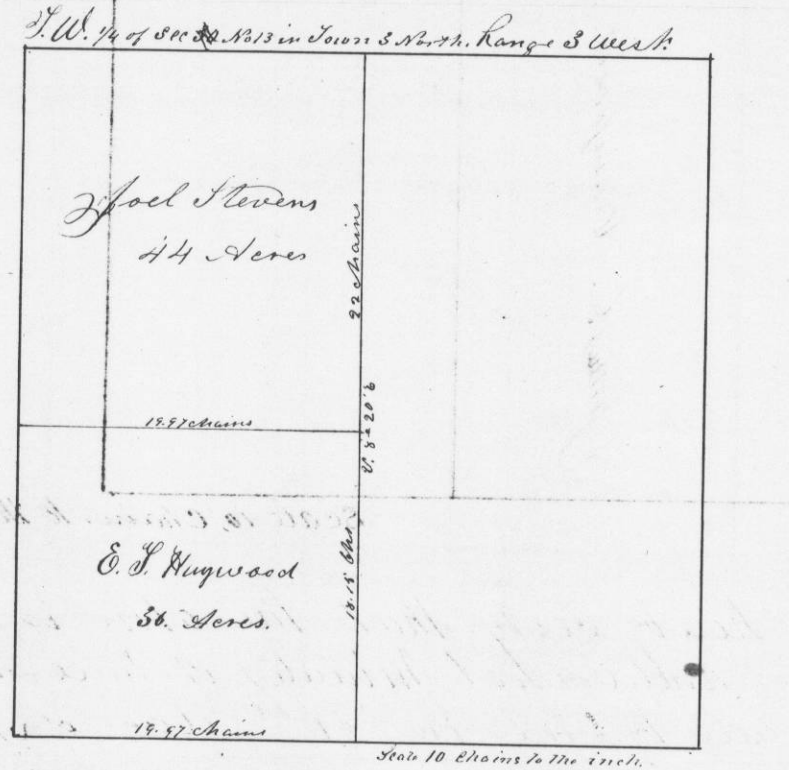 S.W. 1/4 of Sec No 13 in Town 3 North. Range 3 West.
Joel Stevens
44 Acres
22 Chains
19.97 chains
V. 8° 20' E
E. S. Haywood
36. Acres.
18.15 Chs.
19.97 Chains
Scale 10 Chains to the inch.